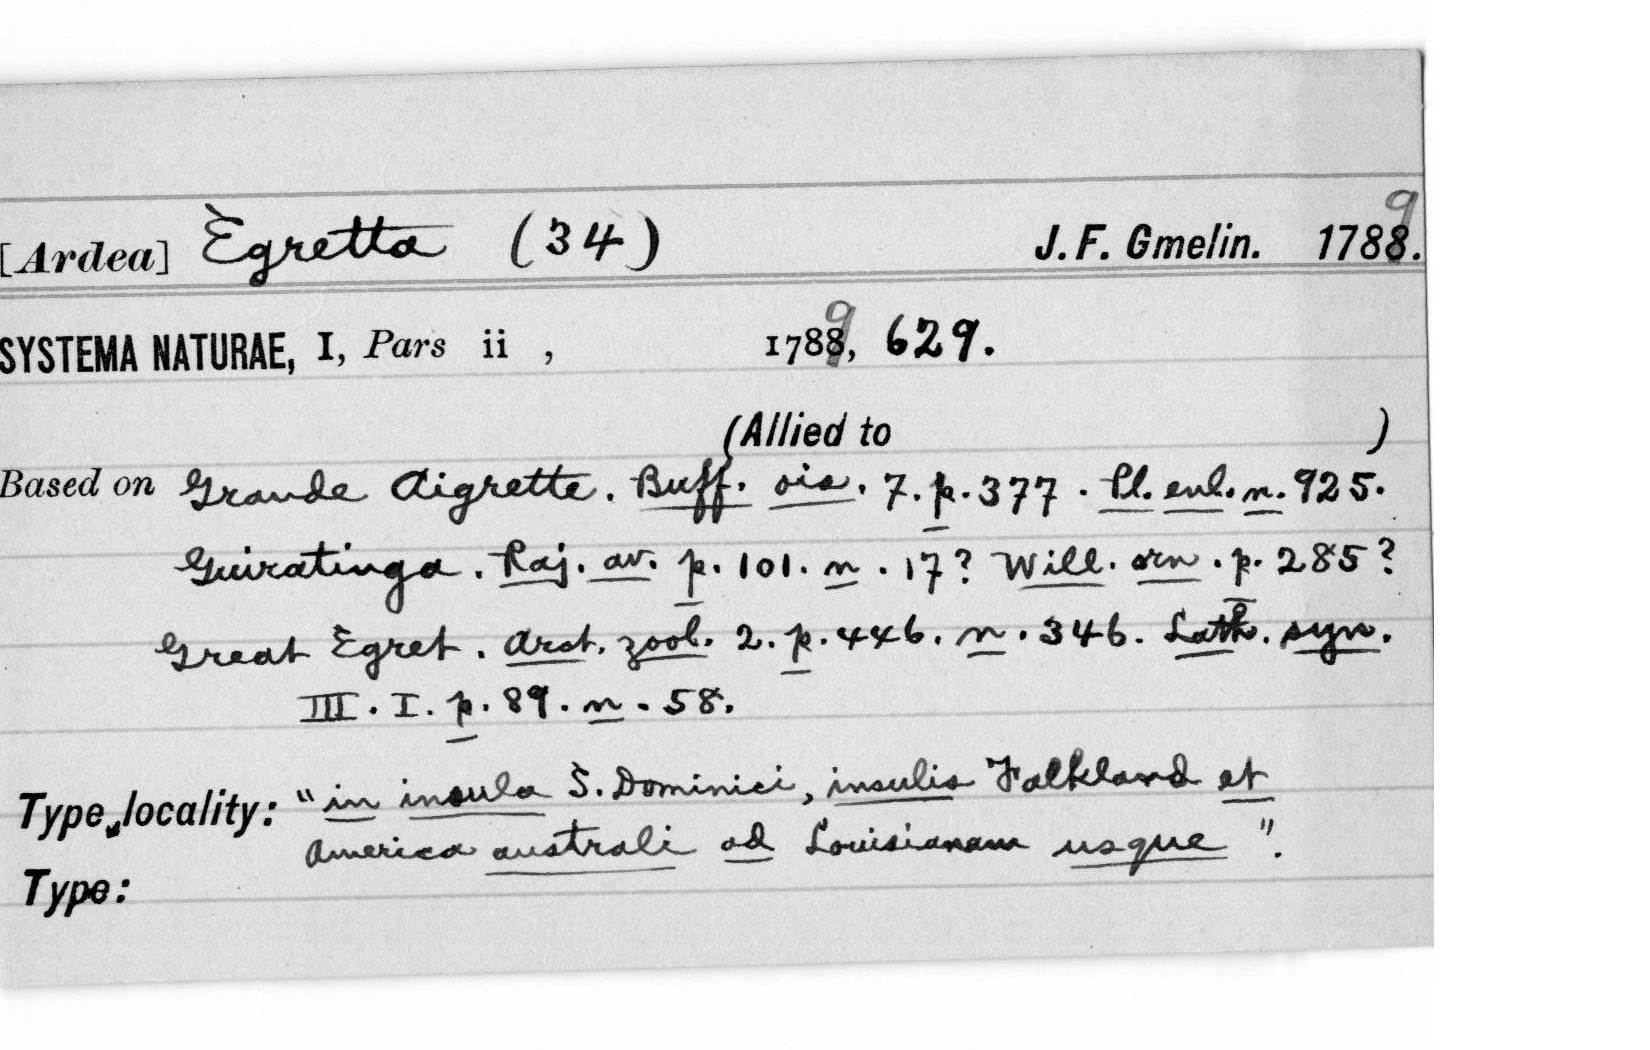 [Ardea] Egretta (34) J. F. Gmelin. 1789.
SYSTEMA NATURAE, I, Pars ii , 1789, 629.
(Allied to )
Based on Grande Aigrette. Buff. ois. 7. p. 377. Pl. enl. n. 925.
Guiratinga. Raj. av. p. 101. n. 17? Will. orn. p. 285?
Great Egret. Arct. zool. 2. p. 446. n. 346. Lath. syn.
III. I. p. 89. n. 58.
Type locality: "in insula S. Dominici, insulis Falkland et
America australi ad Louisianam usque".
Type: